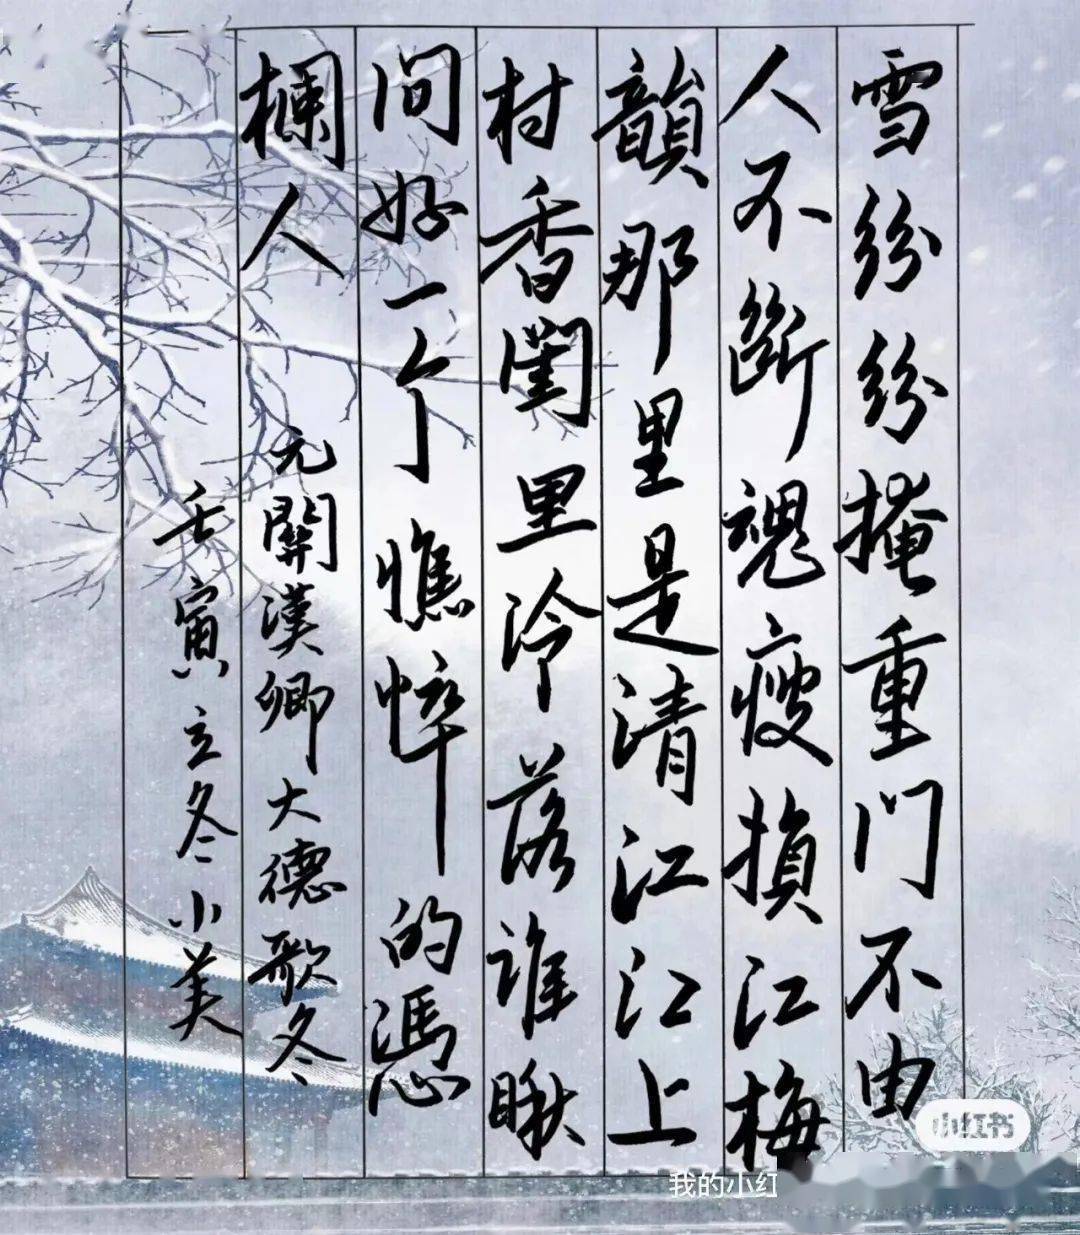 雪紛紛掩重門不由
人不斷魂瘦損江梅
韻那里是清江江上
村香閨里冷落誰瞅
問好一个憔悴的憑
欄人
元關漢卿大德歌冬
壬寅立冬小美
小红书
我的小红